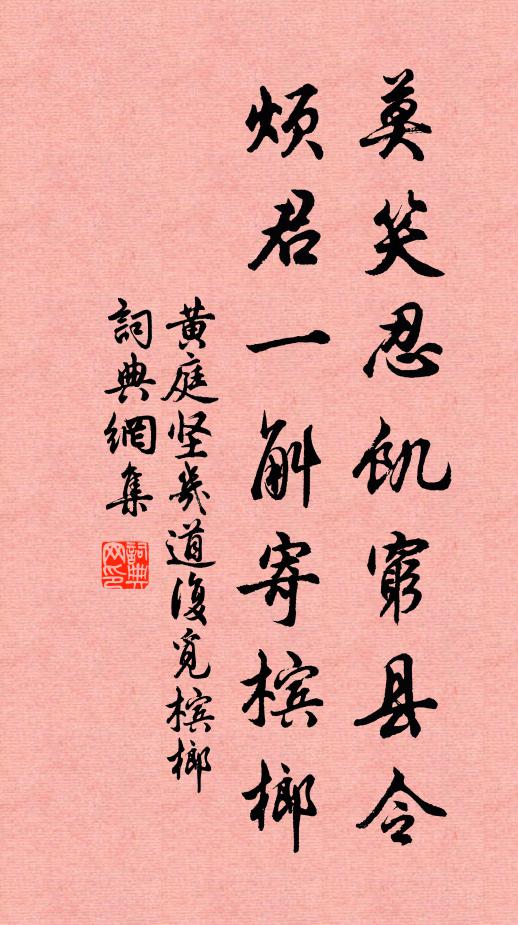 莫笑忍飢窮县令
烦君一斛寄槟榔
黄庭坚几道復觅槟榔
詞典網集
詞典
网印